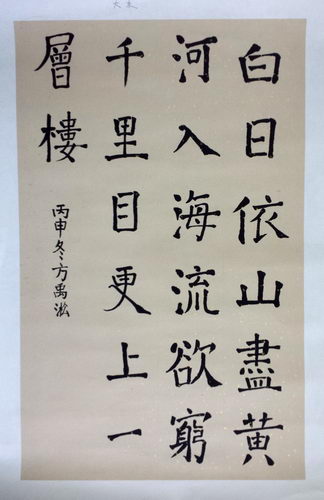 白日依山盡黃
河入海流欲窮
千里目更上一
層樓
丙申冬方禹淞